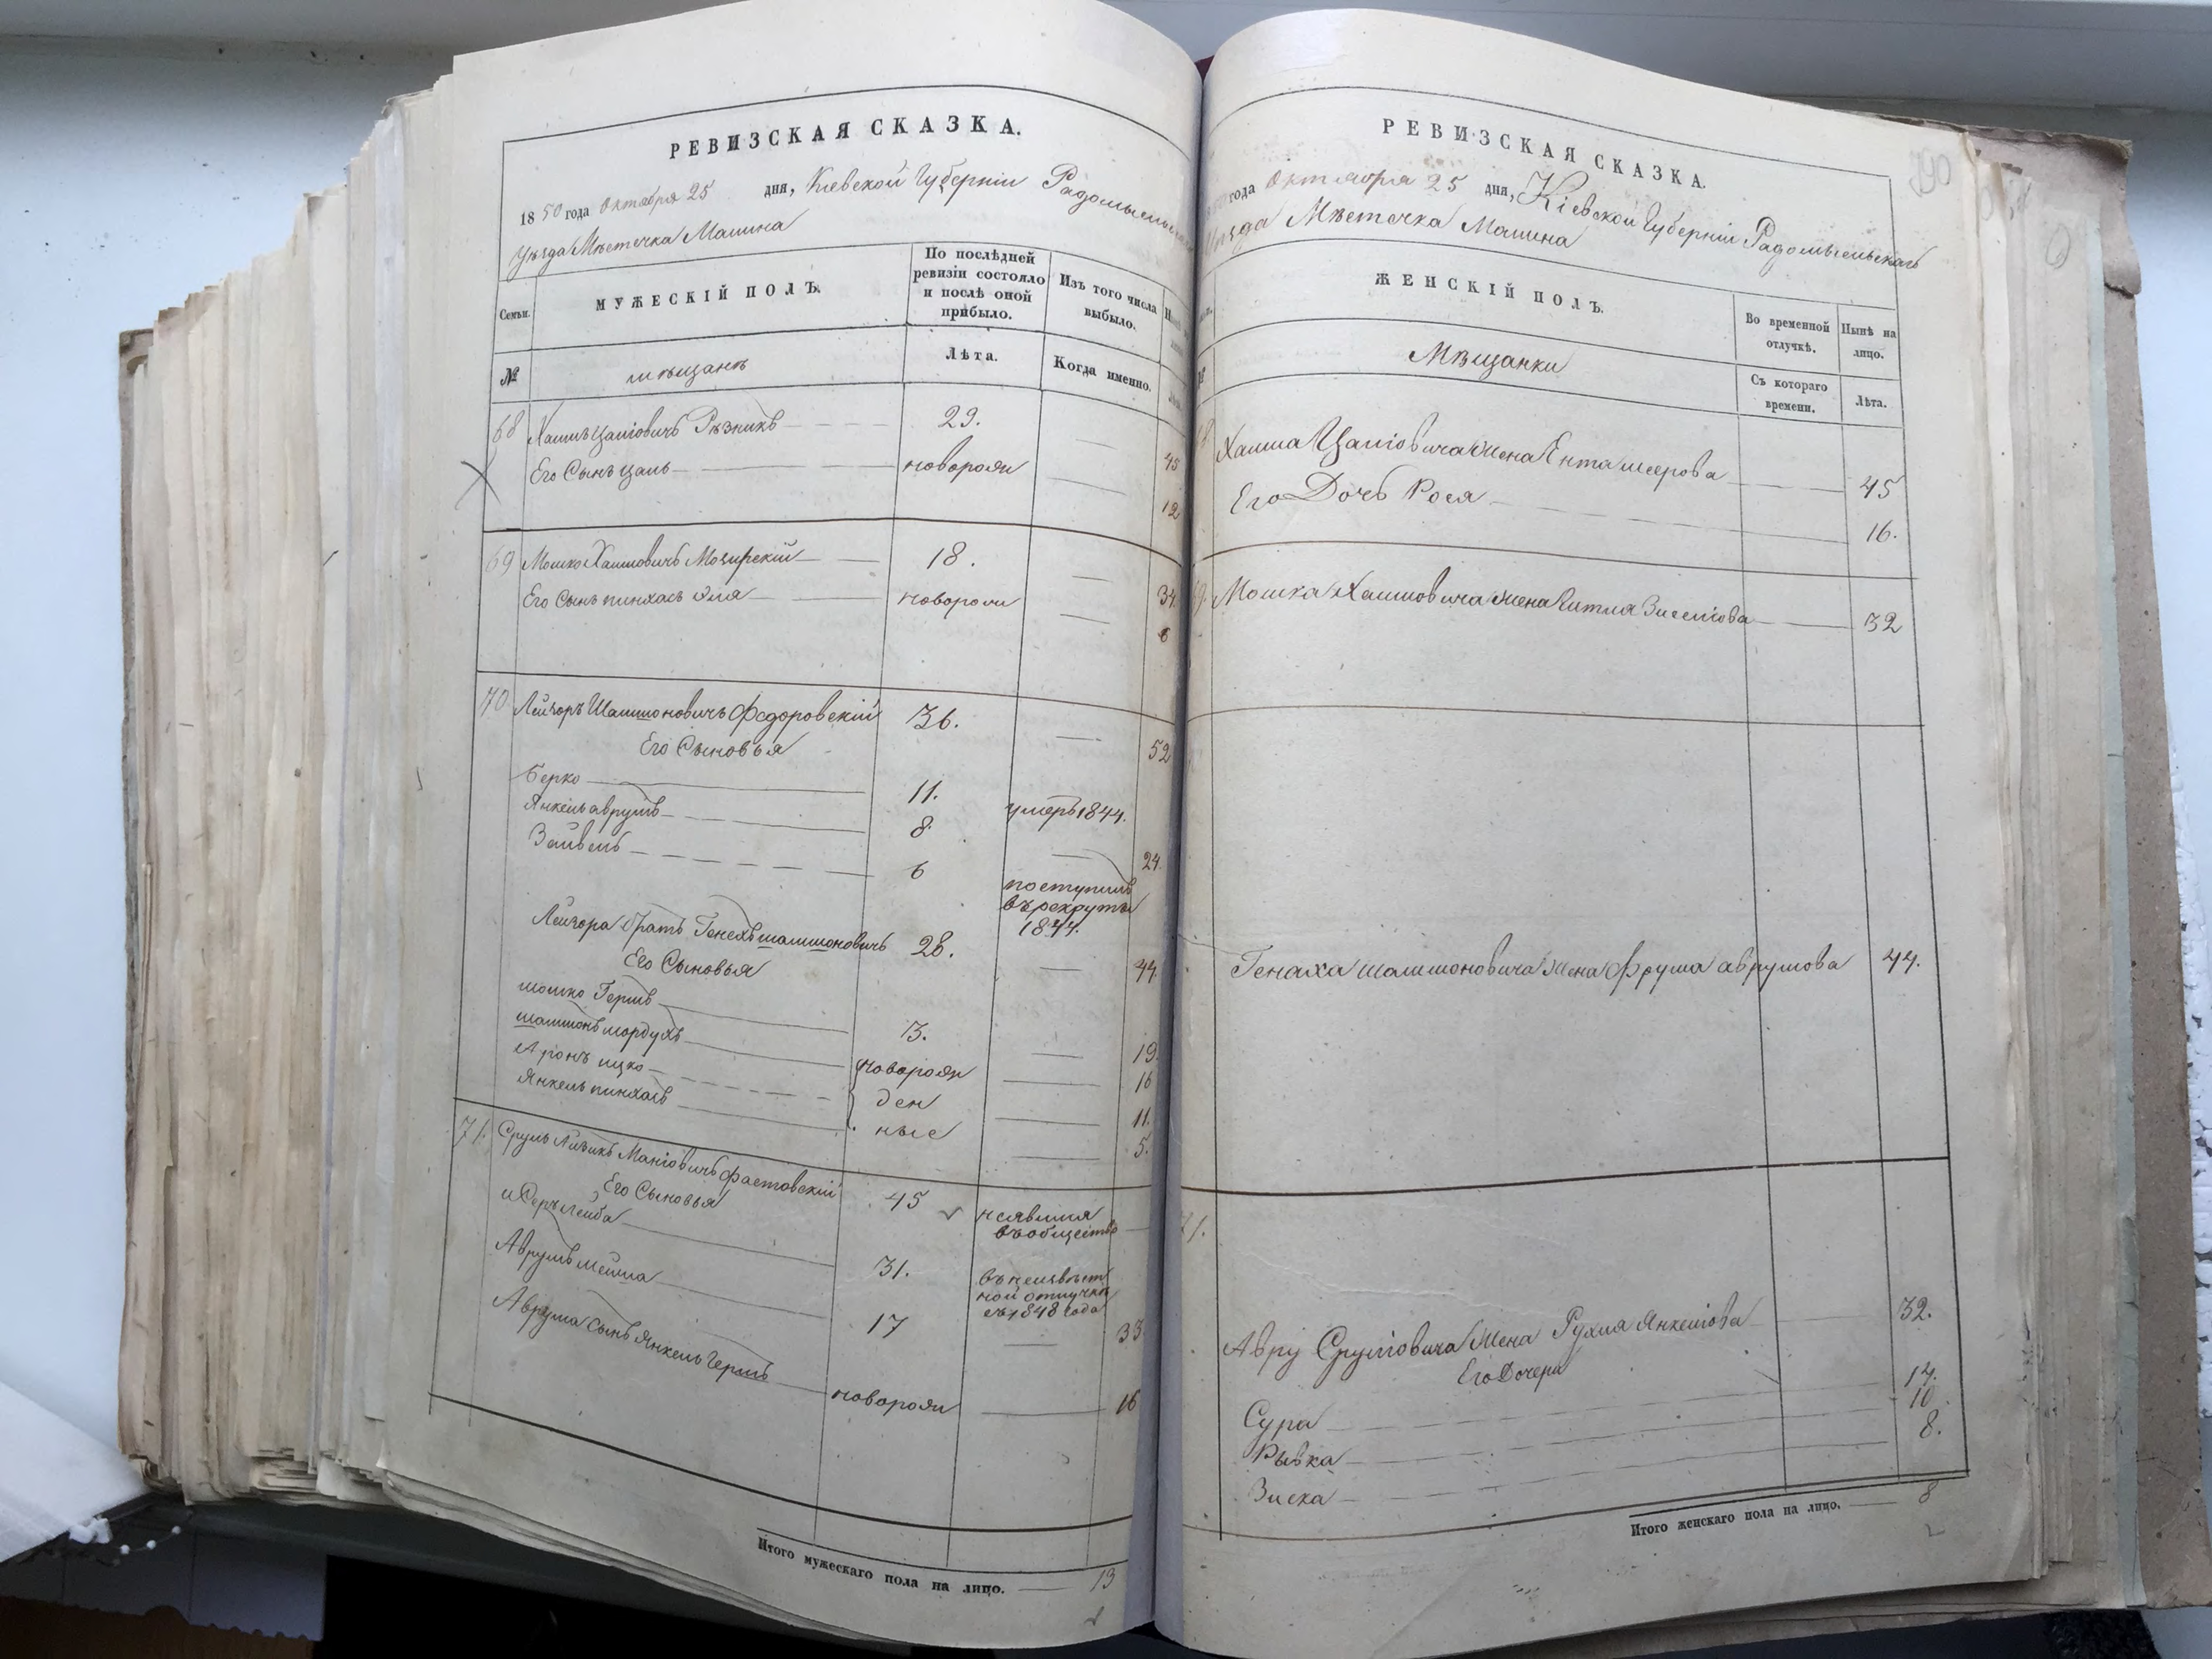 РЕВИЗСКАЯ СКАЗКА.
1850 года Октября 25 дня, Кіевской Губерніи Радомысльскаго
Уѣзда Мѣстечка Малина
Семьи.
МУЖЕСКІЙ ПОЛЪ.
По послѣдней ревизіи состояло и послѣ оной прибыло.
Изъ того числа выбыло.
№
мѣщанъ
Лѣта.
Когда именно.
68 Хаимъ Цаліовичъ Рѣзникъ 29. 45
Его Сынъ Цаль новорож 12
69 Мошко Хаимовичъ Мозирскій 18. 34
Его Сынъ пинхасъ Эля новорож 6
70 Лейзоръ Шашмоновичъ Федоровскій 36. 52
Его Сыновья
Берко 11. умеръ 1844.
Янкель аврумъ 8. 24
Зайвель 6 поступилъ
въ рекруты
1844.
Лейзора братъ Генехъ шашмоновичъ 28. 44
Его Сыновья
мошко Гершъ 3. 19
шашмонъ мордухъ новорож 16
Аронъ ицко ден 11.
Янкель пинхасъ ные 5.
71. Сруль Айзикъ Маніовичъ Фастовскій 45 неявился
въ общество
Его Сыновья
Лейба 31. въ неизвѣст
ной отлучкѣ
съ 1848 года
Аврумъ мейша 17 33
Аврума Сынъ Янкель Гершъ новорож 16
Итого мужескаго пола на лицо. 13
РЕВИЗСКАЯ СКАЗКА.
года Октября 25 дня, Кіевской Губерніи Радомысльскаго
Уѣзда Мѣстечка Малина
ЖЕНСКІЙ ПОЛЪ.
Во временной отлучкѣ.
Нынѣ на лицо.
Мѣщанки
Съ котораго времени.
Лѣта.
Хаима Цаліовича Жена Ента меерова 45
Его Дочь Рося 16.
Мошка Хаимовича Жена Гитля Зиселіова 32
Генаха шашмоновича Жена Фрума аврумова 44.
71.
Авру Сруліовича Жена Рухля Янкеліова 32.
Его Дочери
Сура 14.
Рывка 10.
Зиска 8.
Итого женскаго пола на лицо. 8